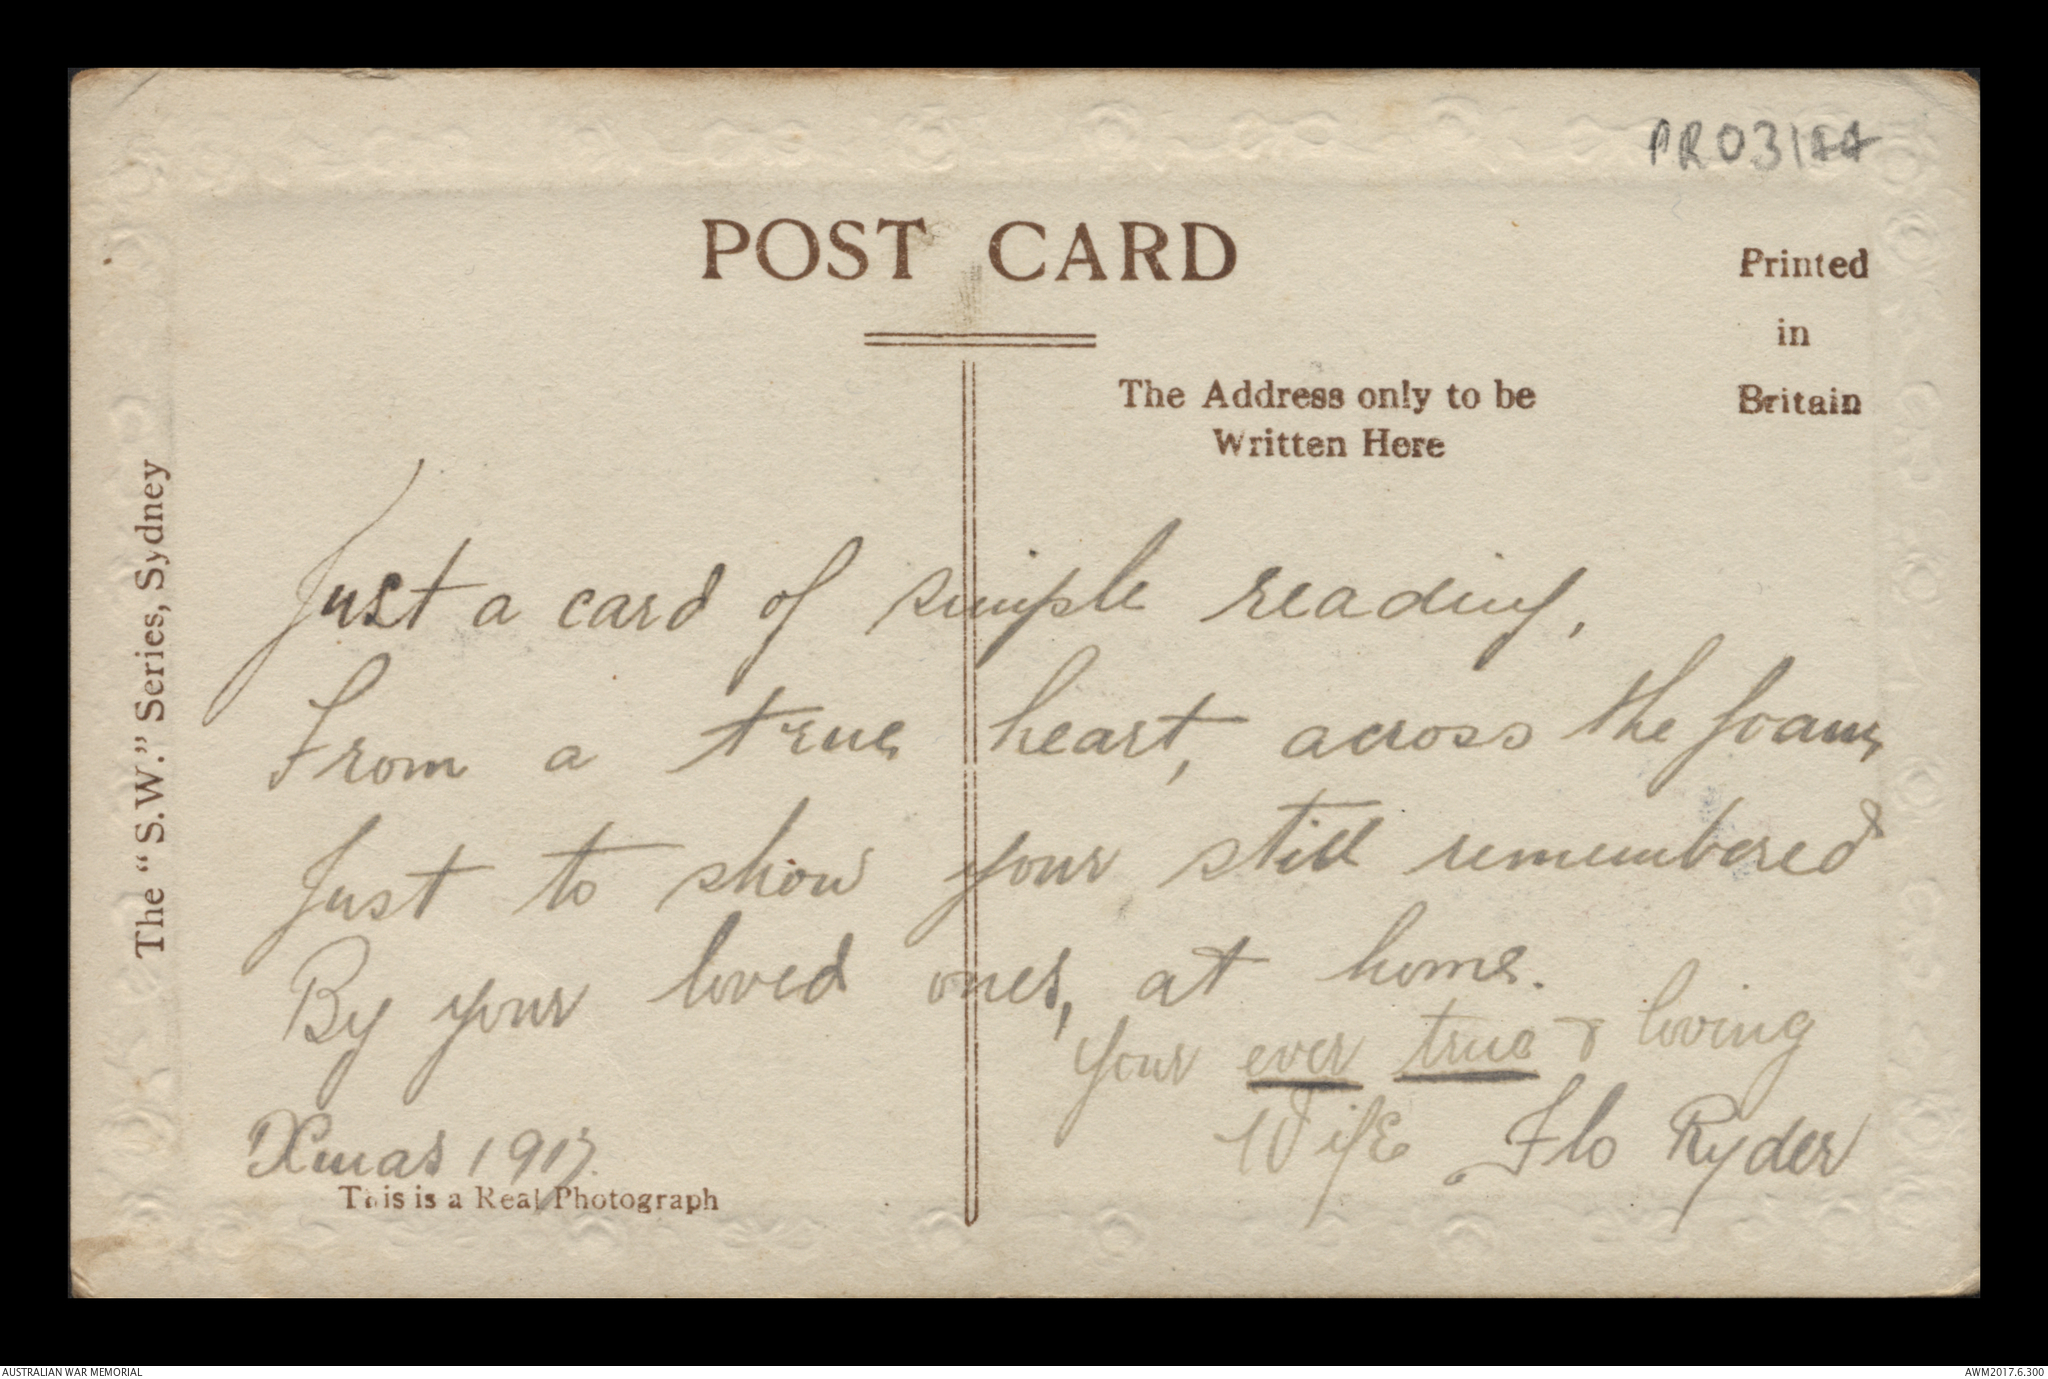 PR03144
POST CARD
Printed
in
Britain
The Address only to be
Written Here
The "S.W." Series, Sydney
Just a card of simple reading,
From a true heart, across the foam,
Just to show your still remembered
By your loved ones, at home.
Your ever true & loving
Wife Flo Ryder
Xmas 1917.
This is a Real Photograph
AUSTRALIAN WAR MEMORIAL
AWM2017.6.300